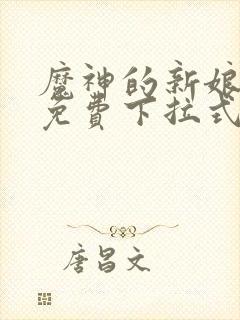 魔神的新娘
免費下拉式
唐昌文